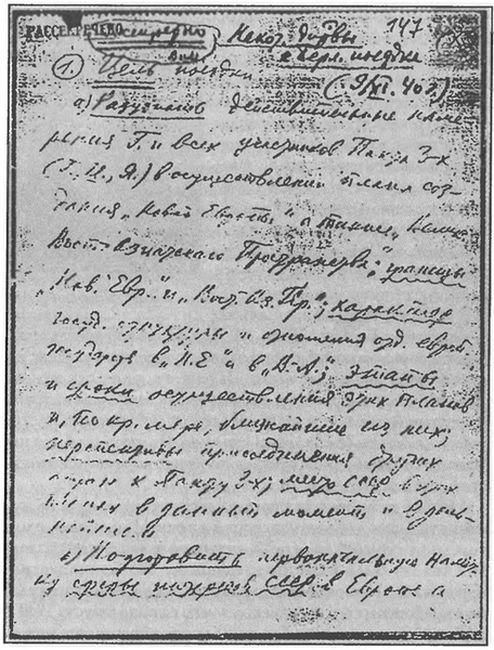 147
РАССЕКРЕЧЕНО
Некот. дир‑вы
к Берл. поездке
1. Цель поездки
(9/XI.40 г.)
а) Разузнать действительные наме-
рения Г. и всех участников Пакта 3-х
(Г., И., Я.) в осуществлении плана соз-
дания „Новой Европы", а также „Велик.
Вост-Азиатского Пространства"; границы
„Нов. Евр." и „Вост.-Аз. Пр."; характер
госуд. структуры и отношения отд. европ.
государств в „Н.Е." и в „В.-А."; этапы
и сроки осуществления этих планов
и, по кр. мере, ближайшие из них;
перспективы присоединения других
стран к Пакту 3-х; место СССР в этих
планах в данный момент и в даль-
нейшем.
б) Подготовить первоначальную намет-
ку сферы интересов СССР в Европе, а